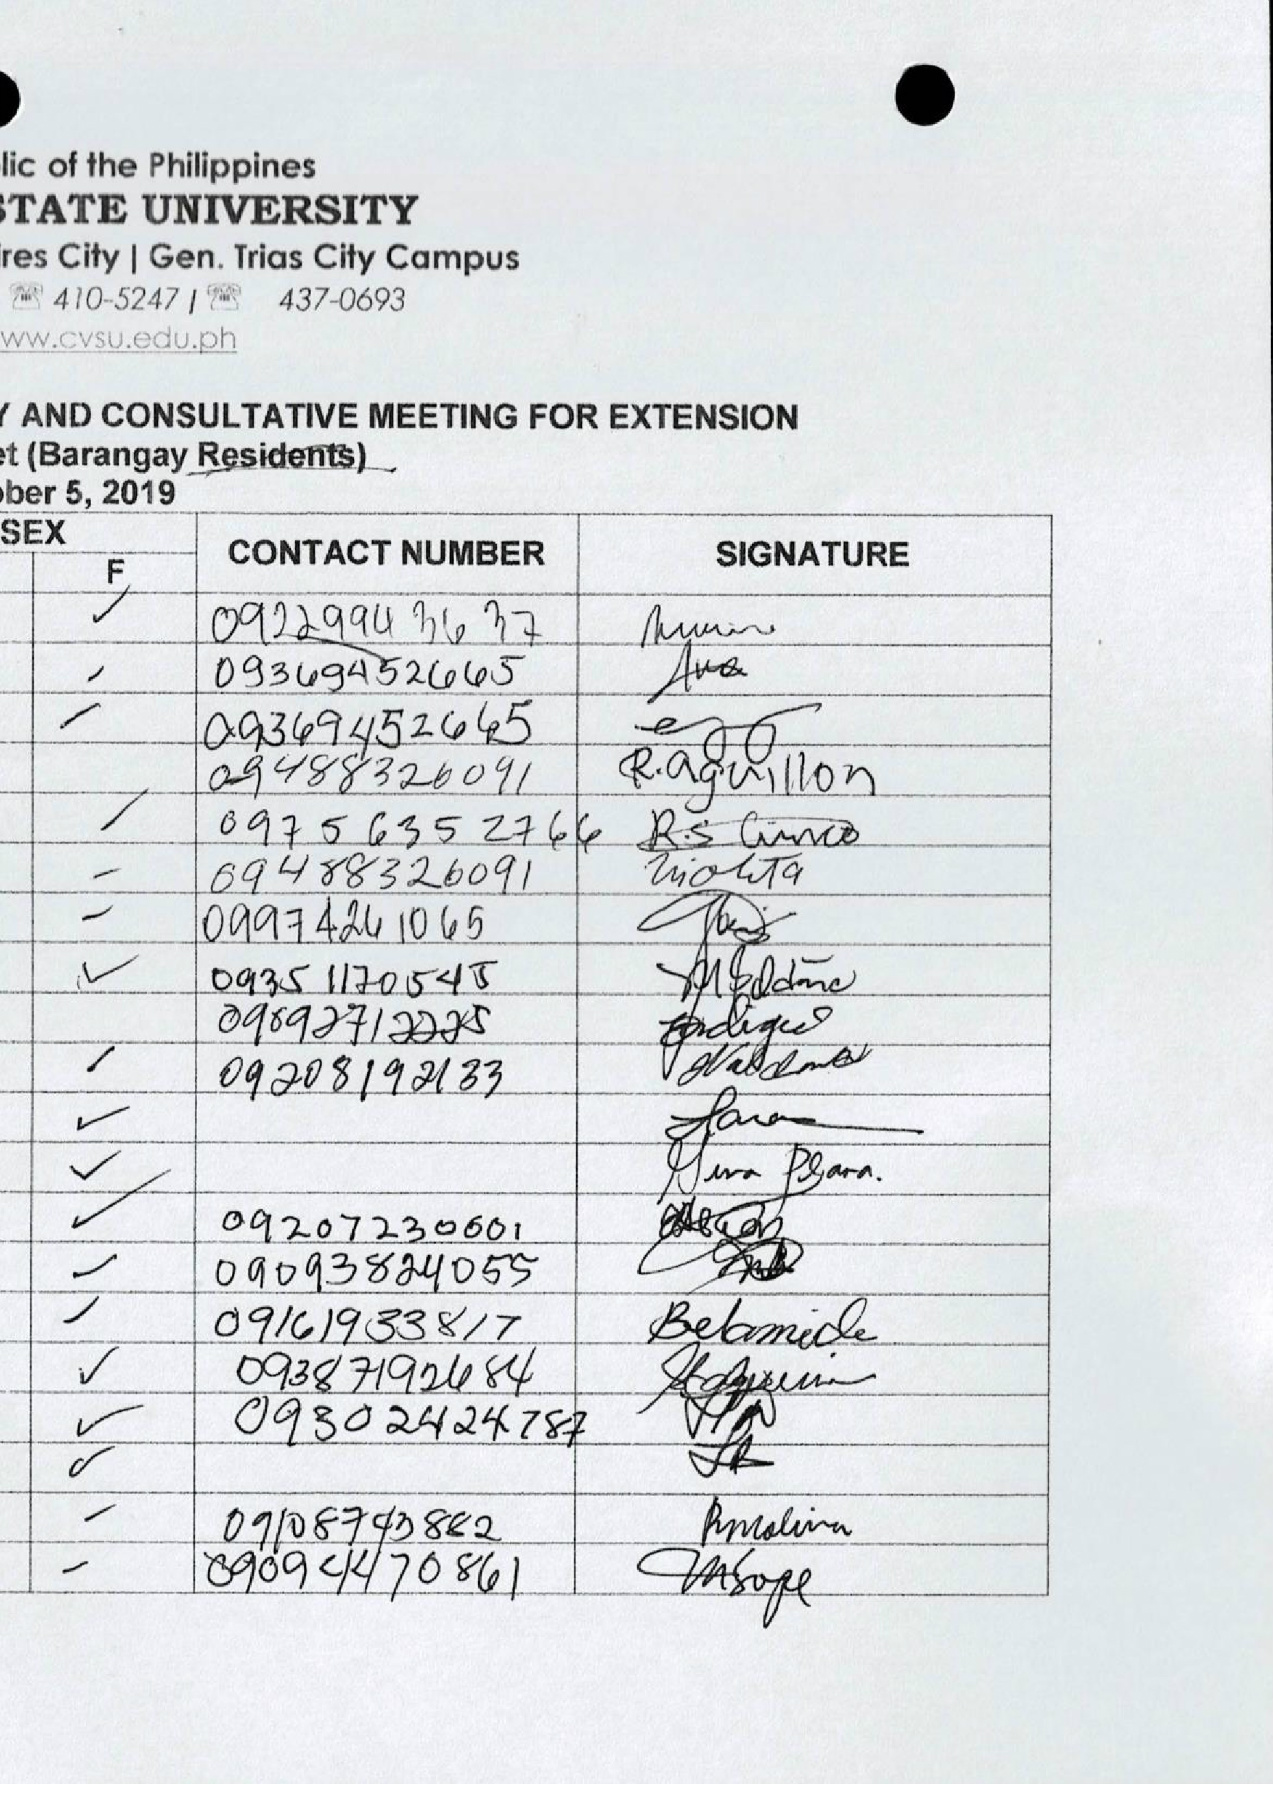 lic of the Philippines
STATE UNIVERSITY
ires City | Gen. Trias City Campus
☏ 410-5247 | ☏ 437-0693
ww.cvsu.edu.ph
Y AND CONSULTATIVE MEETING FOR EXTENSION
et (Barangay Residents)
ober 5, 2019
SEX CONTACT NUMBER SIGNATURE
F
✓ 09229943637
093694526665
09369452665
09488326091 R.aguillon
09756352766 R.S Cinco
09488326091 Violeta
09974261065
✓ 09351170545
09092712225
09208192133
✓
✓
✓ 09207230601
09093824055
09161933817 Belamide
✓ 09387192684
✓ 09302424787
✓
09108743882 RMolina
09094470861